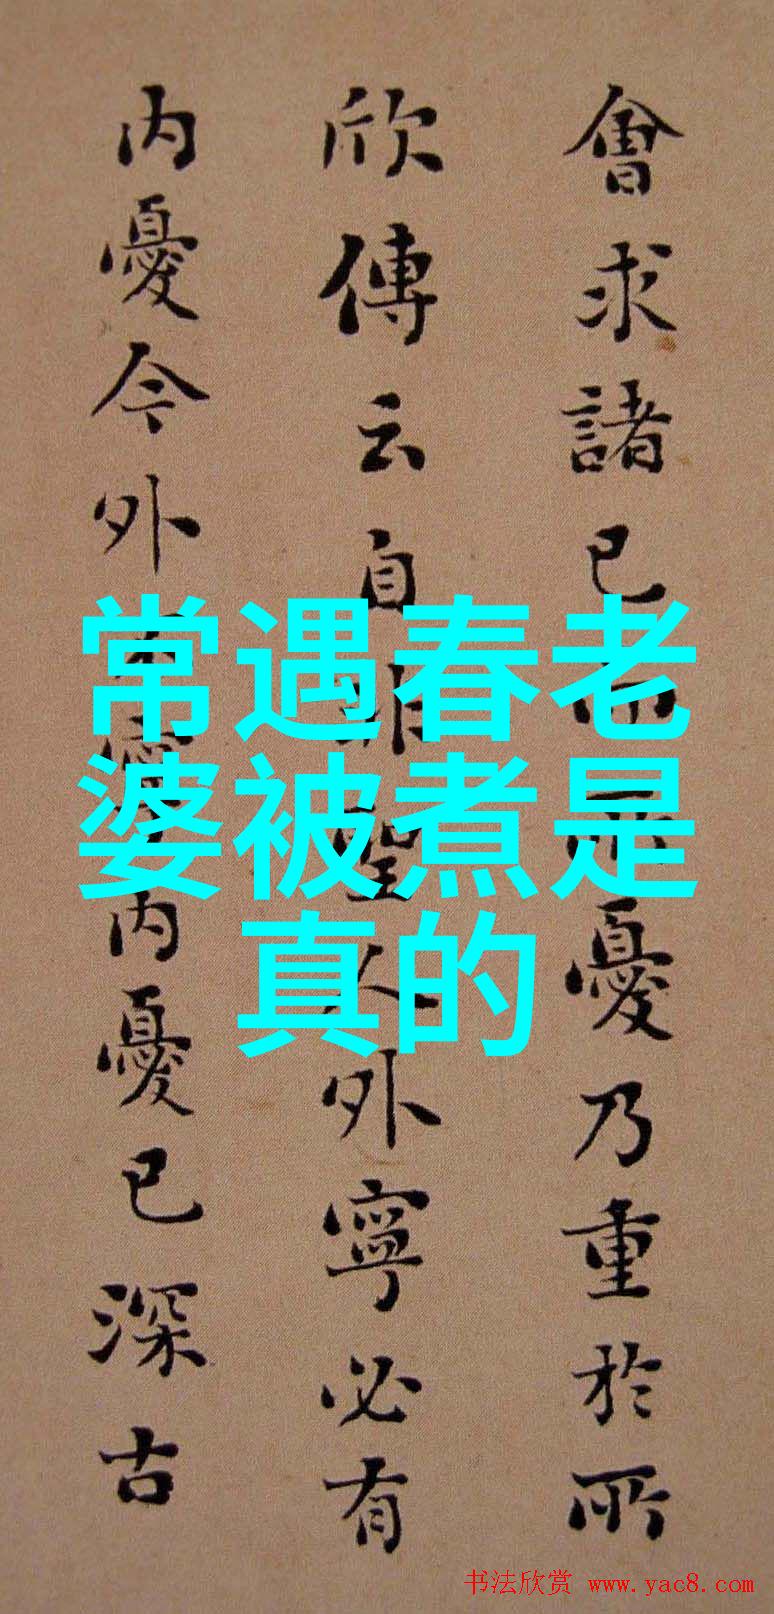 會求諸已而所憂乃重於所
欣傳云自非聖人外寧必有
内憂今外不寧内憂已深古
常遇春老
婆被煮是
真的
书法欣赏 www.yac8.com